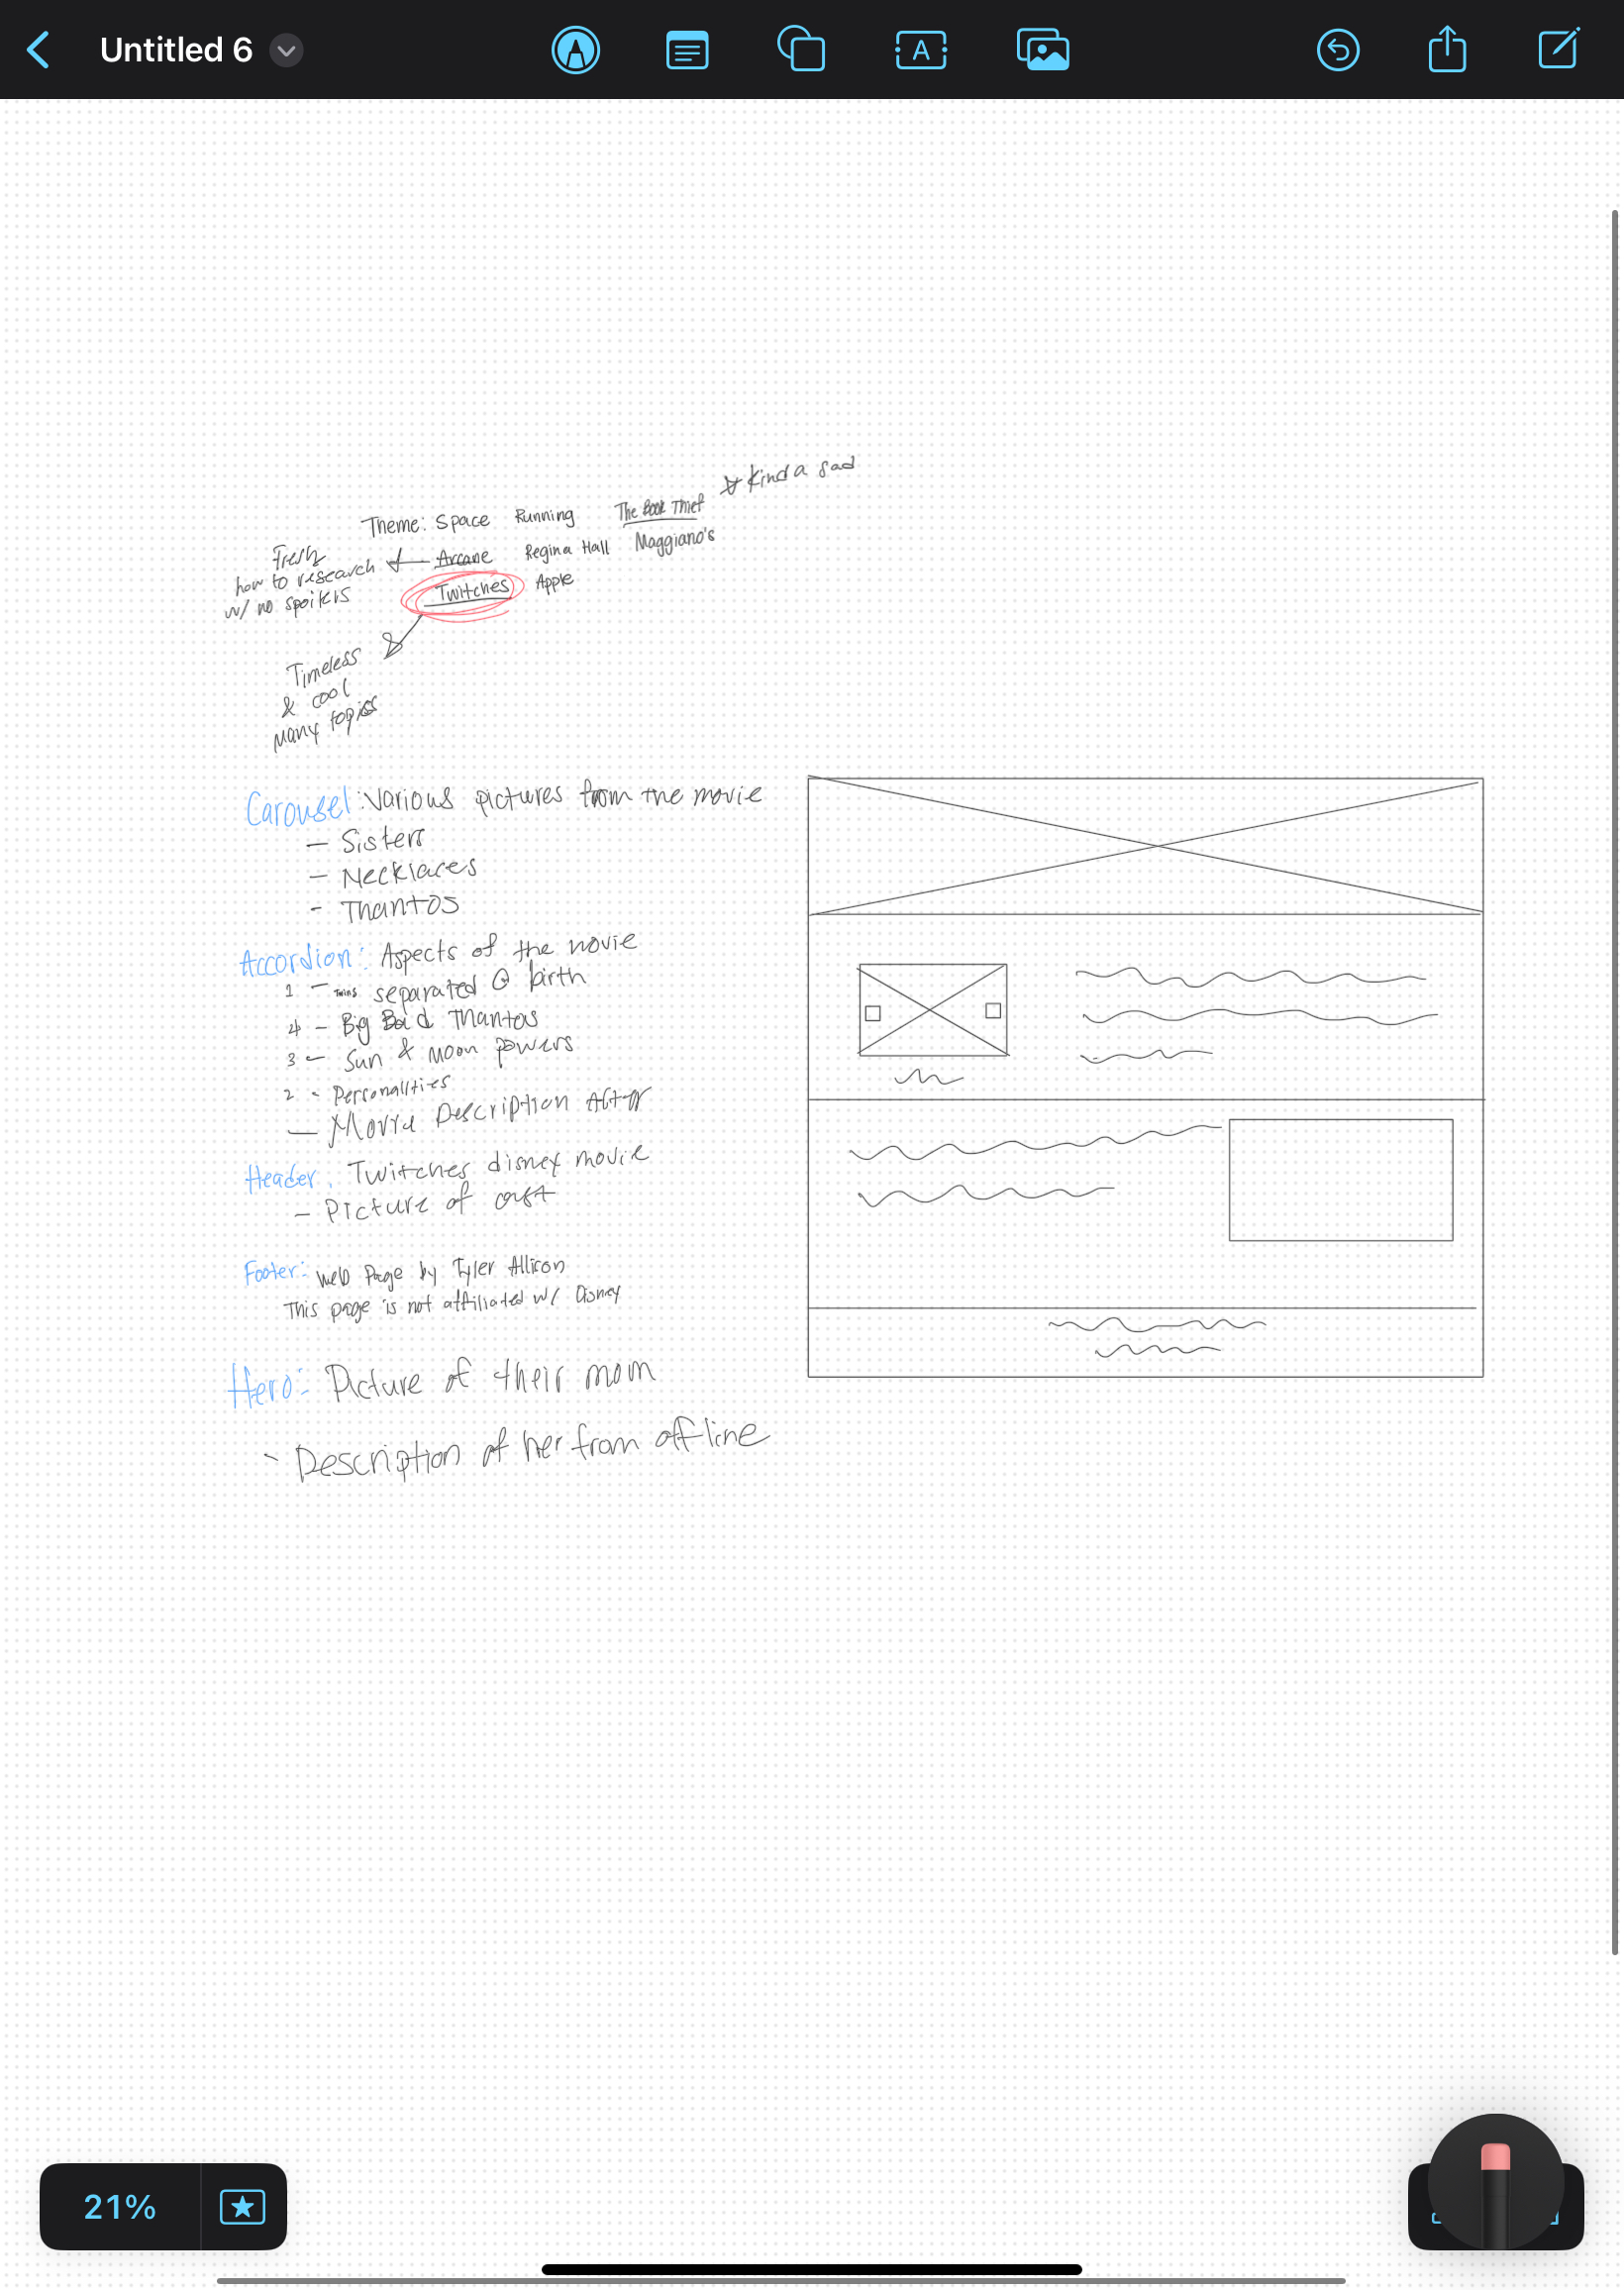 Untitled 6
Kind a sad
Theme: Space Running The Book Thief
Fresh Arcane Regina Hall Maggiano's
how to research
w/ no spoilers Twitches Apple
Timeless
& cool
Many topics
Carousel: Various pictures from the movie
- Sisters
- Necklaces
- Thantos
Accordion: Aspects of the movie
1 - Twins separated @ birth
4 - Big Bad Thantos
3 - Sun & Moon powers
2 - Personalities
- Movie Description After
Header: Twitches disney movie
- Picture of cast
Footer: Web Page by Tyler Allison
This page is not affiliated w/ Disney
Hero: Picture of their mom
- Description of her from offline
21%